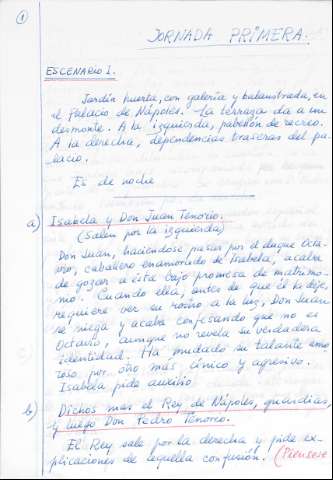 1
JORNADA PRIMERA.
ESCENARIO I.
Jardín huerta, con galería y balaustrada, en
el Palacio de Nápoles. La terraza da a un
desmonte. A la izquierda, pabellón de recreo.
A la derecha, dependencias traseras del pa-
lacio.
Es de noche
a) Isabela y Don Juan Tenorio.
(Salen por la izquierda)
Don Juan, haciéndose pasar por el duque Octa-
vio, caballero enamorado de Isabela, acaba
de gozar a ésta bajo promesa de matrimo-
nio. Cuando ella, antes de que él la deje,
requiere ver su rostro a la luz, Don Juan
se niega y acaba confesando que no es
Octavio, aunque no revela su verdadera
identidad. Ha mudado su talante amo-
roso por otro más cínico y agresivo.
Isabela pide auxilio.
b) Dichos más el Rey de Nápoles, guardias,
y luego Don Pedro Tenorio.
El Rey sale por la derecha y pide ex-
plicaciones de aquella confusión. (Piensese